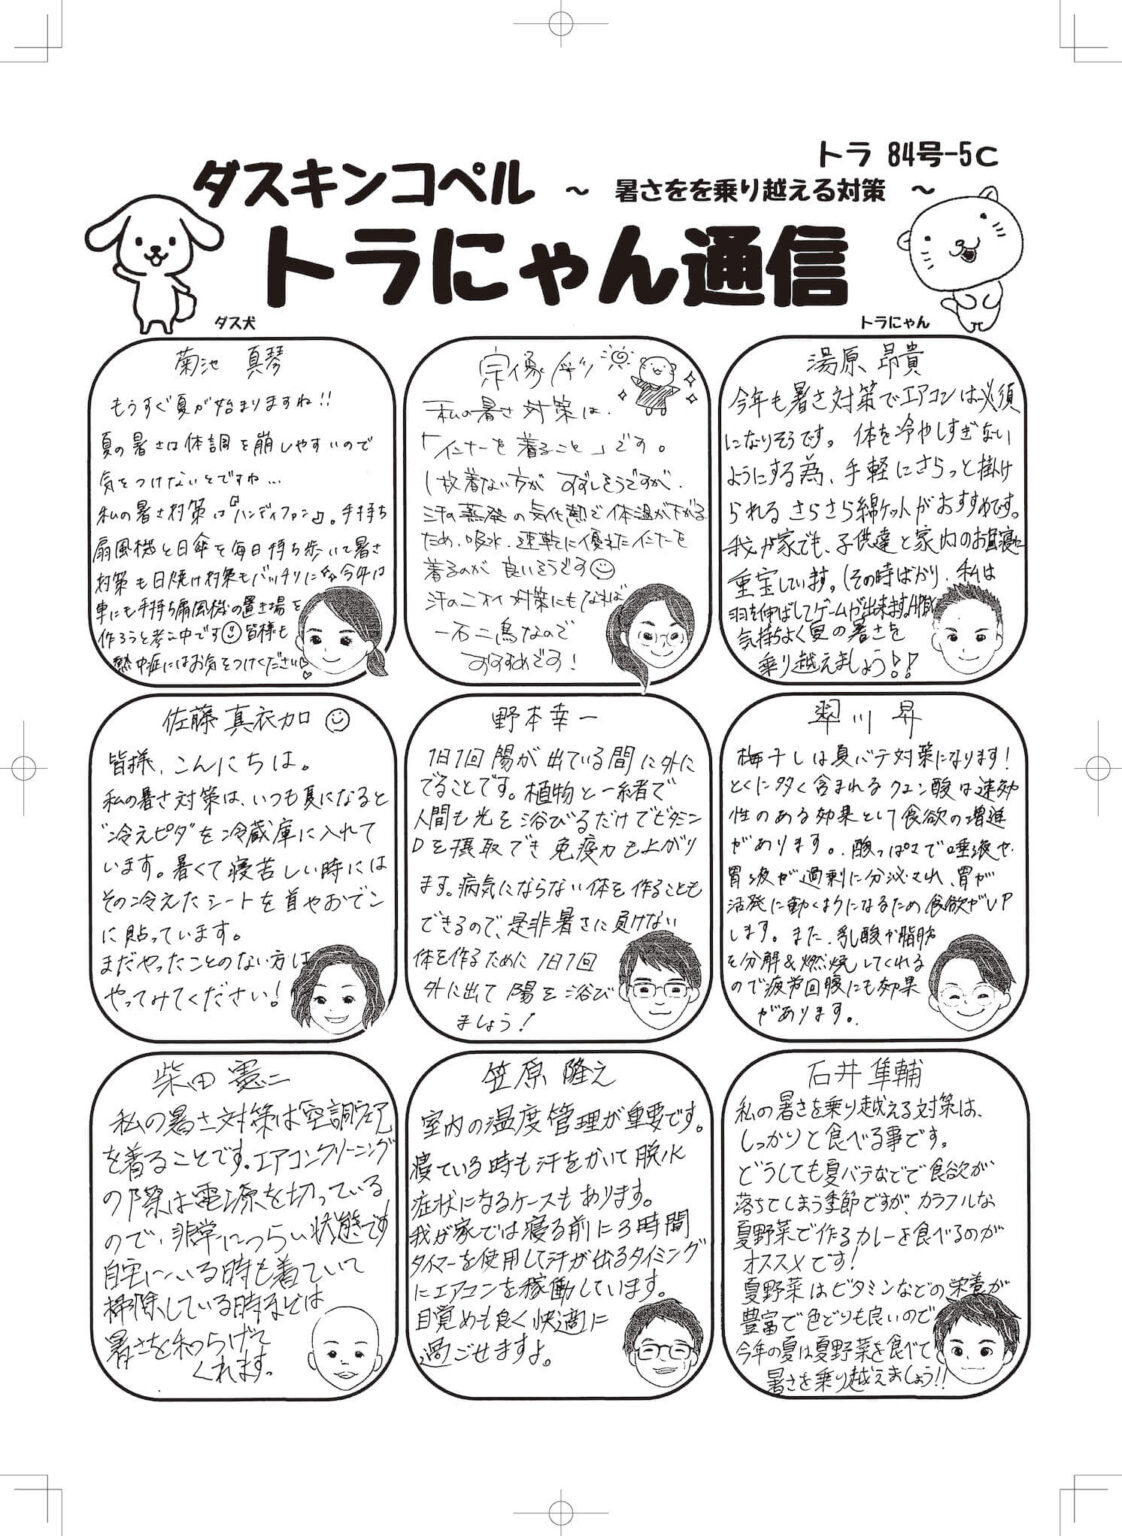 トラ 84号-5C
ダスキンコペル ～ 暑さをを乗り越える対策 ～
トラにゃん通信
ダス犬
トラにゃん
菊池 真琴
もうすぐ夏が始まりますね!!
夏の暑さは体調を崩しやすいので
気をつけないとですね…
私の暑さ対策は『ハンディファン』。手持ち
扇風機と日傘を毎日持ち歩いて暑さ
対策も日焼け対策もバッチリに 今年は
車にも手持ち扇風機の置き場を
作ろうと考え中です 皆様も
熱中症にはお気をつけください
宗像
私の暑さ対策は、
「インナーを着ること」です。
1枚着ない方が すずしそうですが、
汗の蒸発の気化熱で体温が下がる
ため、吸水、速乾に優れたインナーを
着るのが 良いそうです
汗のニオイ対策にもなれば
一石二鳥なので
すすめです!
湯原 昂貴
今年も暑さ対策でエアコンは必須
になりそうです。体を冷やしすぎない
ようにする為、手軽にさらっと掛け
られる さらさら綿ケットがおすすめです。
我が家でも、子供達と家内のお昼寝に
重宝しています。(その時ばかり、私は
羽を伸ばしてゲームが出来ます
気持ちよく夏の暑さを
乗り越えましょう!!
佐藤 真衣加
皆様、こんにちは。
私の暑さ対策は、いつも夏になると
"冷えピタ"を冷蔵庫に入れて
います。暑くて寝苦しい時には
その冷えたシートを首やおでこ
に貼っています。
まだやったことのない方は
やってみてください!
野本幸一
1日1回 陽が出ている間に外に
でることです。植物と一緒で
人間も光を浴びるだけでビタミン
Dを摂取でき 免疫力も上がり
ます。病気にならない体を作ることも
できるので、是非暑さに負けない
体を作るために 1日1回
外に出て 陽を浴び
ましょう!
翠川 昇
梅干しは夏バテ対策になります!
とくに多く含まれるクエン酸は速効
性のある効果として食欲の増進
があります。酸っぱさで唾液や
胃液が過剰に分泌され、胃が
活発に動くようになるため食欲がUP
します。また、乳酸や脂肪
を分解&燃焼してくれる
ので疲労回復にも効果
があります。
柴田 憲二
私の暑さ対策は「空調ウェア」
を着ることです。エアコンクリーニング
の際は電源を切っている
ので、非常につらい状態です
自宅にいる時も着ていて
掃除している時などは
暑さを和らげて
くれます。
笠原 隆之
室内の温度管理が重要です。
寝ている時も汗をかいて脱水
症状になるケースもあります。
我が家では寝る前に3時間
タイマーを使用して汗が出るタイミング
にエアコンを稼働しています。
目覚めも良く快適に
過ごせますよ。
石井 隼輔
私の暑さを乗り越える対策は、
しっかりと食べる事です。
どうしても夏バテなどで食欲が
落ちてしまう季節ですが、カラフルな
夏野菜で作るカレーを食べるのが
オススメです!
夏野菜はビタミンなどの栄養が
豊富で色どりも良いので
今年の夏は夏野菜を食べて
暑さを乗り越えましょう!!